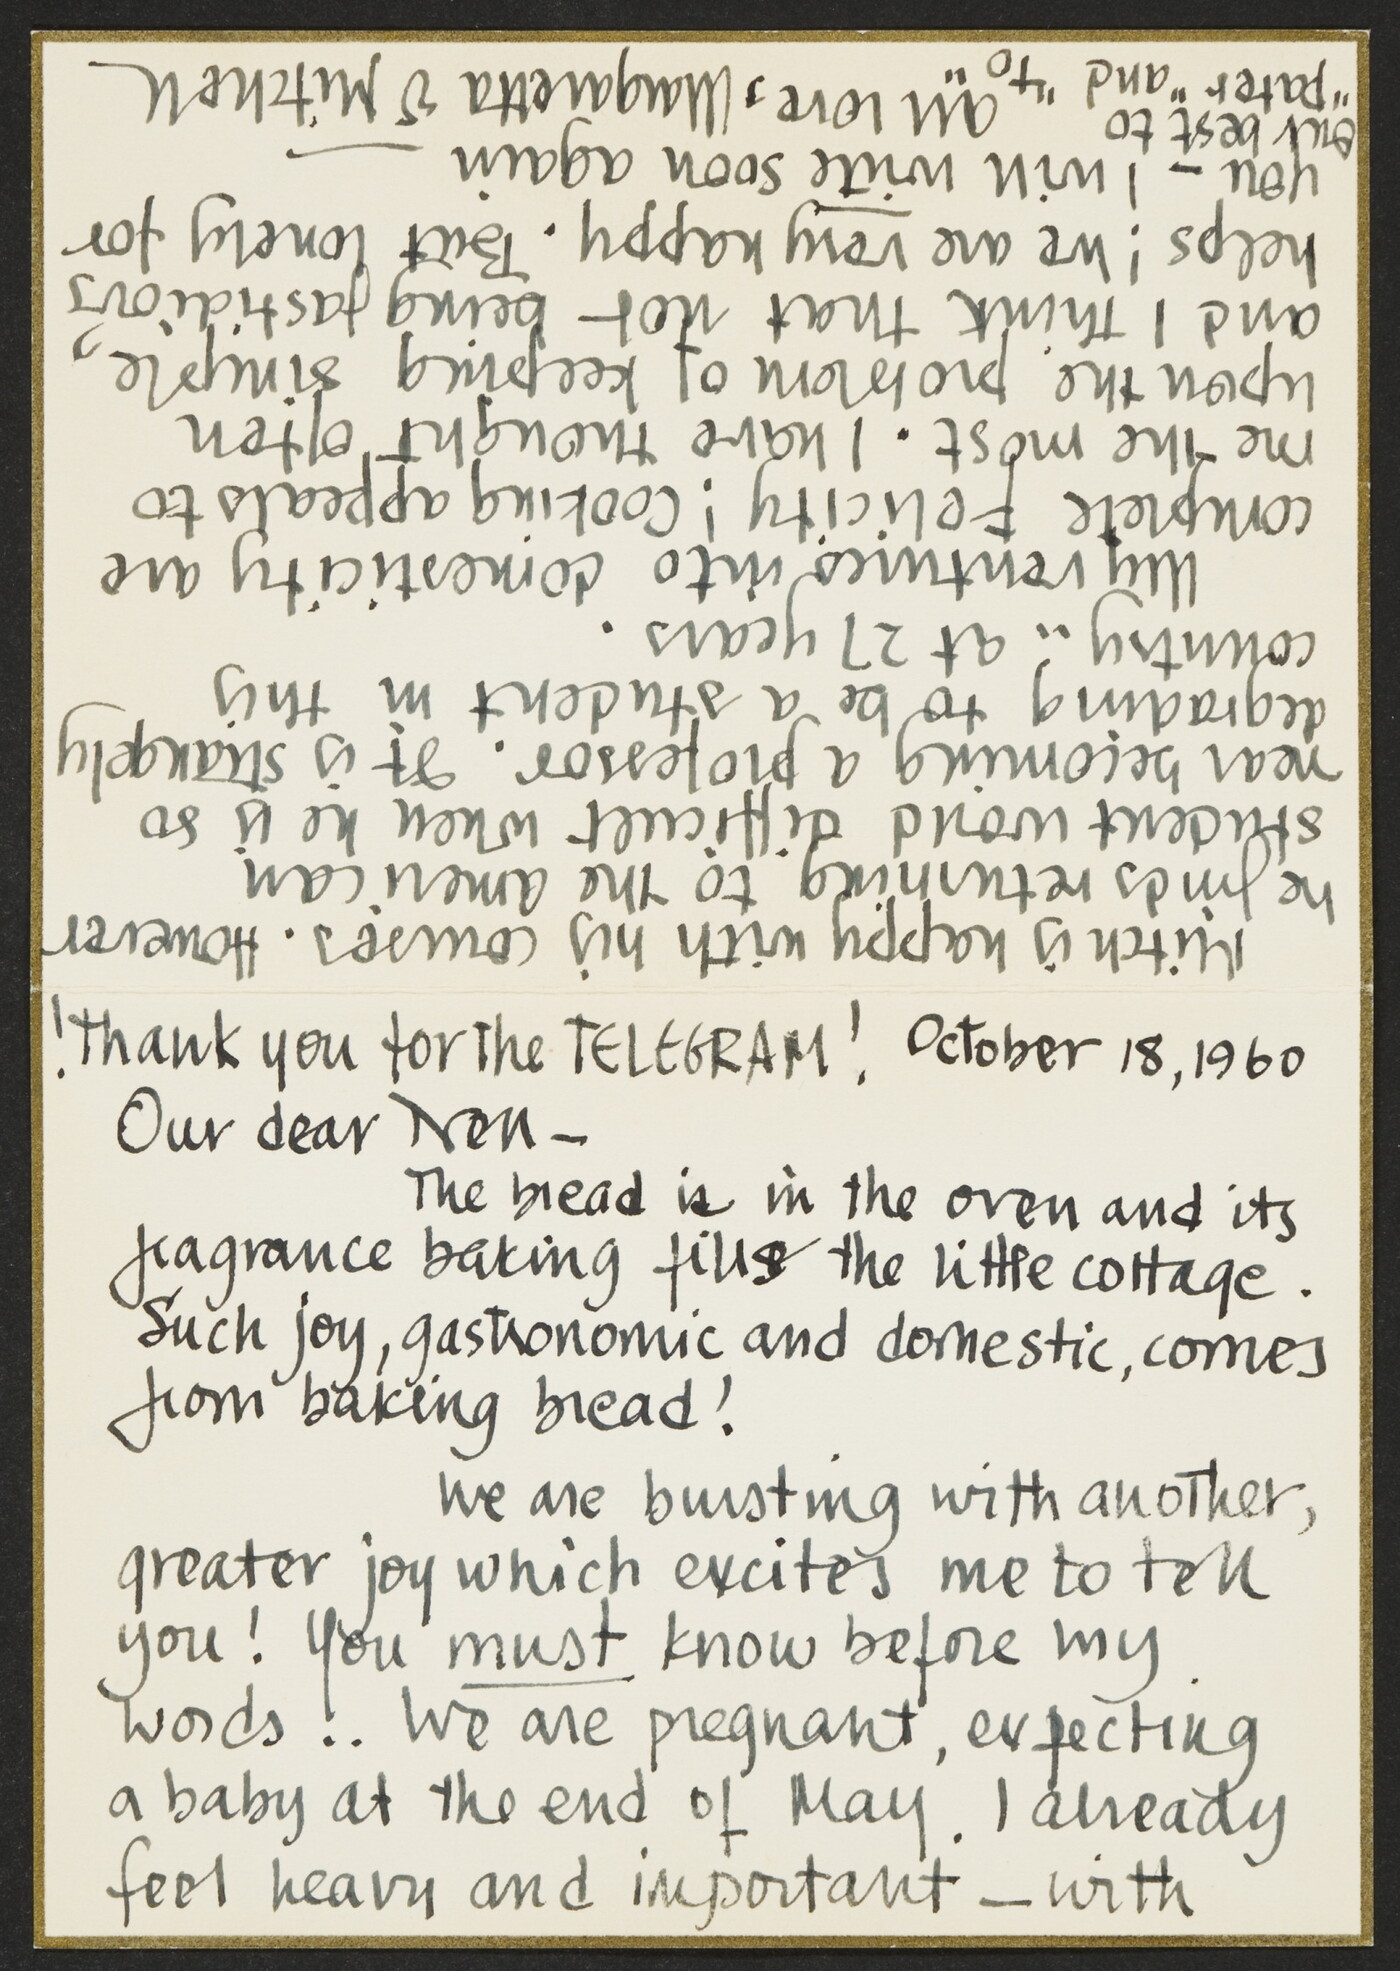 !Thank you for the TELEGRAM! October 18, 1960
Our dear Nell –
The bread is in the oven and its
fragrance baking fills the little cottage.
Such joy, gastronomic and domestic, comes
from baking bread!
We are bursting with another,
greater joy which excites me to tell
you! You must know before my
words !.. We are pregnant, expecting
a baby at the end of May. I already
feel heavy and important – with
Mitch is happy with his courses. However
he finds returning to the american
student world difficult when he is so
near becoming a professor. It is strangely
degrading to be a student in this
country .. at 27 years.
My ventures into domesticity are
complete Felicity! Cooking appeals to
me the most. I have thought often
upon the problem of keeping simple,
and I think that not being fastidious
helps! We are very happy. But lonely for
you – I will write soon again
our best to
"pater" and "to" all love, Margaretta & Mitchell